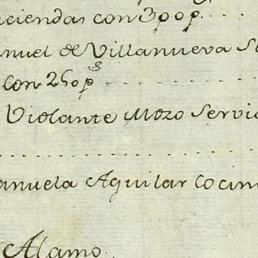 ciendas con 300 p.
anuel de Villanueva S
con 250 p.s
Violante Mozo Servi
anuela Aguilar Cocin
Alamo.